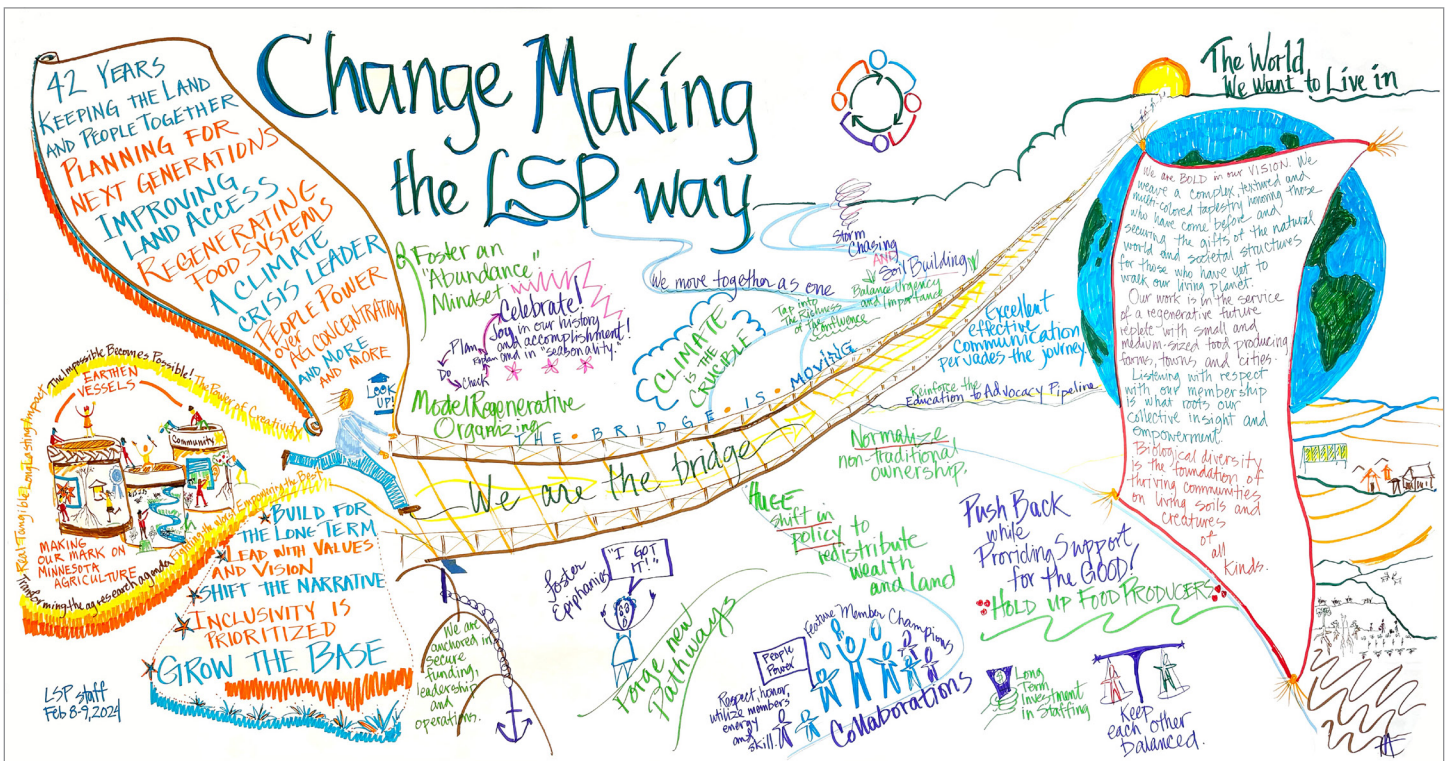 Change Making
the LSP way
42 YEARS
KEEPING THE LAND
AND PEOPLE TOGETHER
PLANNING FOR
NEXT GENERATIONS
IMPROVING
LAND ACCESS
REGENERATING
FOOD SYSTEMS
A CLIMATE
CRISIS LEADER
PEOPLE POWER
over
AG CONCENTRATION
AND MORE
AND MORE
LOOK
UP!
The Impossible Becomes Possible!
The Power of Creativity
Real Tangible Long Lasting Impact
EARTHEN
VESSELS
Community
MAKING
OUR MARK ON
MINNESOTA
AGRICULTURE
Transforming the ag research agenda
BUILD FOR
THE LONG TERM
LEAD WITH VALUES
AND VISION
SHIFT THE NARRATIVE
INCLUSIVITY IS
PRIORITIZED
GROW THE BASE
LSP staff
Feb 8-9, 2024
Foster an
"Abundance"
Mindset
Celebrate!
Joy in our history
and accomplishment!
and in "seasonality."
Plan
Do
Check
Model Regenerative
Organizing
THE • BRIDGE • IS • MOVING
We are the bridge
We move together as one
CLIMATE
IS THE
CRUCIBLE
Tap into
The Richness
of the
Confluence
Storm
Chasing
AND
Soil Building
Balance Urgency
and Importance
Excellent
effective
Communication
pervades the journey.
Reinforce the
Education to Advocacy Pipeline
Normalize
non-traditional
ownership.
HUGE
shift in
policy to
redistribute
wealth
and land
We are
anchored in
secure
funding,
leadership
and
operations.
Foster
Epiphanies
"I GOT
IT!"
Forge new
Pathways
People
Power
Feature Member Champions
Respect, honor,
utilize members
energy
and
skill.
Collaborations
Push Back
while
Providing Support
for the GOOD!
HOLD UP FOOD PRODUCERS
Long
Term
Investment
in Staffing
Keep
each other
balanced.
The World
We Want to Live in
We are BOLD in our VISION. We
weave a complex, textured and
multi-colored tapestry honoring those
who have come before and
securing the gifts of the natural
world and societal structures
for those who have yet to
walk our living planet.
Our work is in the service
of a regenerative future
replete with small and
medium-sized food producing
farms, towns and cities.
Listening with respect
with our membership
is what roots our
collective insight and
empowerment.
Biological diversity
is the foundation of
thriving communities
on living soils and
creatures
of
all
kinds.